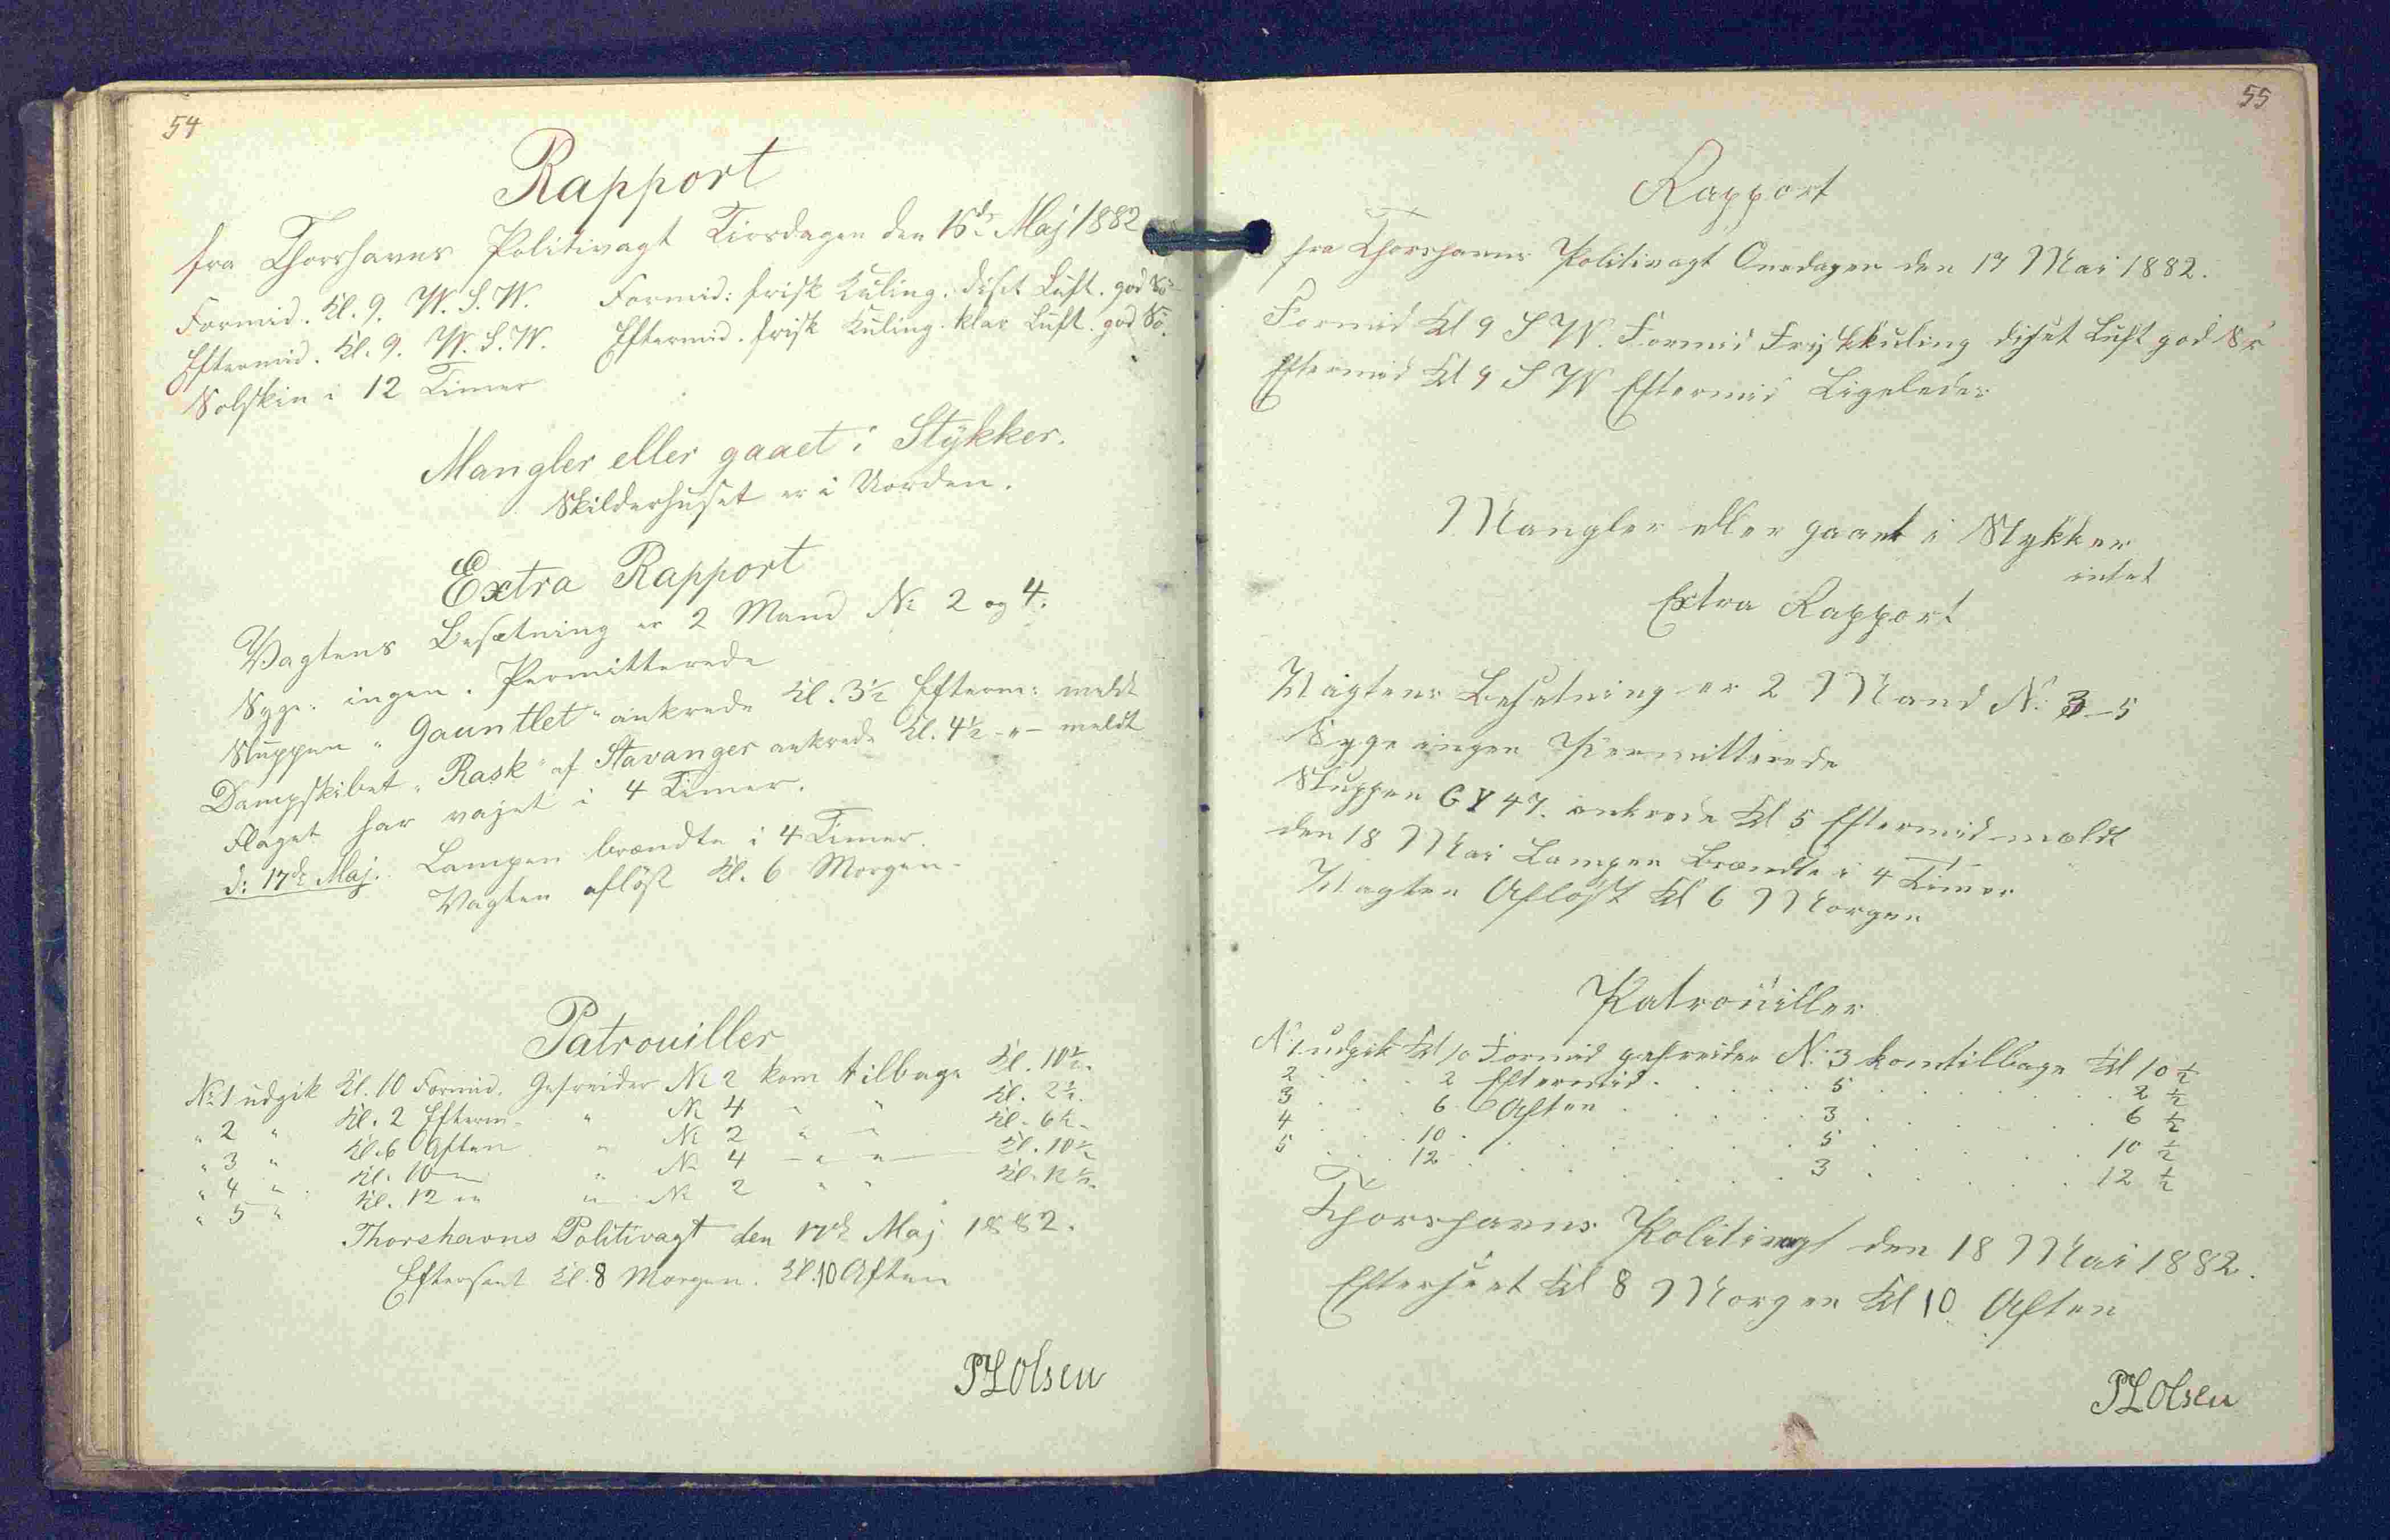 54
Rapport
fra Thorshavns Politivagt Tirsdagen den 16de Maj 1882
Formid. Kl. 9. W. S. W. Formid: frisk Kuling. diset Luft. god Sö
Eftermid. Kl. 9. W. S. W. Eftermid. frisk Kuling. klar Luft. god Sö.
Solskin i 12 Timer
Mangler eller gaaet i Stykker.
Skilderhuset er i Uorden.
Extra Rapport
Vagtens Besætning er 2 Mand No 2 og 4.
Syge: ingen. Permitterede
Sluppen "Gauntlet" ankrede Kl. 3½ Efterm: meldt
Dampskibet "Rask" af Stavanger ankrede Kl. 4½ -"- meldt
Flaget har vajet i 4 Timer.
d: 17de Maj. Lampen brændte i 4 Timer.
Vagten aflöst Kl. 6 Morgen.
Patrouiller
No 1 udgik Kl. 10 Formid. Gefreider No 2 kom tilbage Kl. 10½.
" 2 " Kl. 2 Efterm. " No 4 " " Kl. 2½.
" 3 " Kl. 6 Aften " No 2 " " Kl. 6½.
" 4 " Kl. 10 " " No 4 " " Kl. 10½
" 5 " Kl. 12 " " No 2 " " Kl. 12½.
Thorshavns Politivagt den 17de Maj 1882.
Efterseet Kl. 8 Morgen. Kl. 10 Aften
PLOlsen
55
Rapport
fra Thorshavns Politivagt Onsdagen den 17 Mai 1882.
Formid Kl 9 S W. Formid Friskkuling diset Luft god Sö
Eftermid Kl 9 S W Eftermid Ligeledes
Mangler eller gaaet i Stykker
intet
Extra Rapport
Vagtens Besetning er 2 Mand No. 3-5
Syge ingen Permitterede
Sluppen GY 47. ankrede Kl 5 Eftermid meldt
den 18 Mai Lampen Brændte i 4 Timer
Vagten Aflöst Kl 6 Morgen
Patrouiller
No 1 udgik Kl 10 Formid gefreider No. 3 kom tilbage Kl 10 ½
2 . . . 2 Eftermid . . . 5 . . . 2 ½
3 . . . 6 Aften . . . 3 . . . 6 ½
4 . . . 10 . . . 5 . . . 10 ½
5 . . . 12 . . . 3 . . . 12 ½
Thorshavns Politivagt den 18 Mai 1882.
Efterseet Kl 8 Morgen Kl 10 Aften
PLOlsen